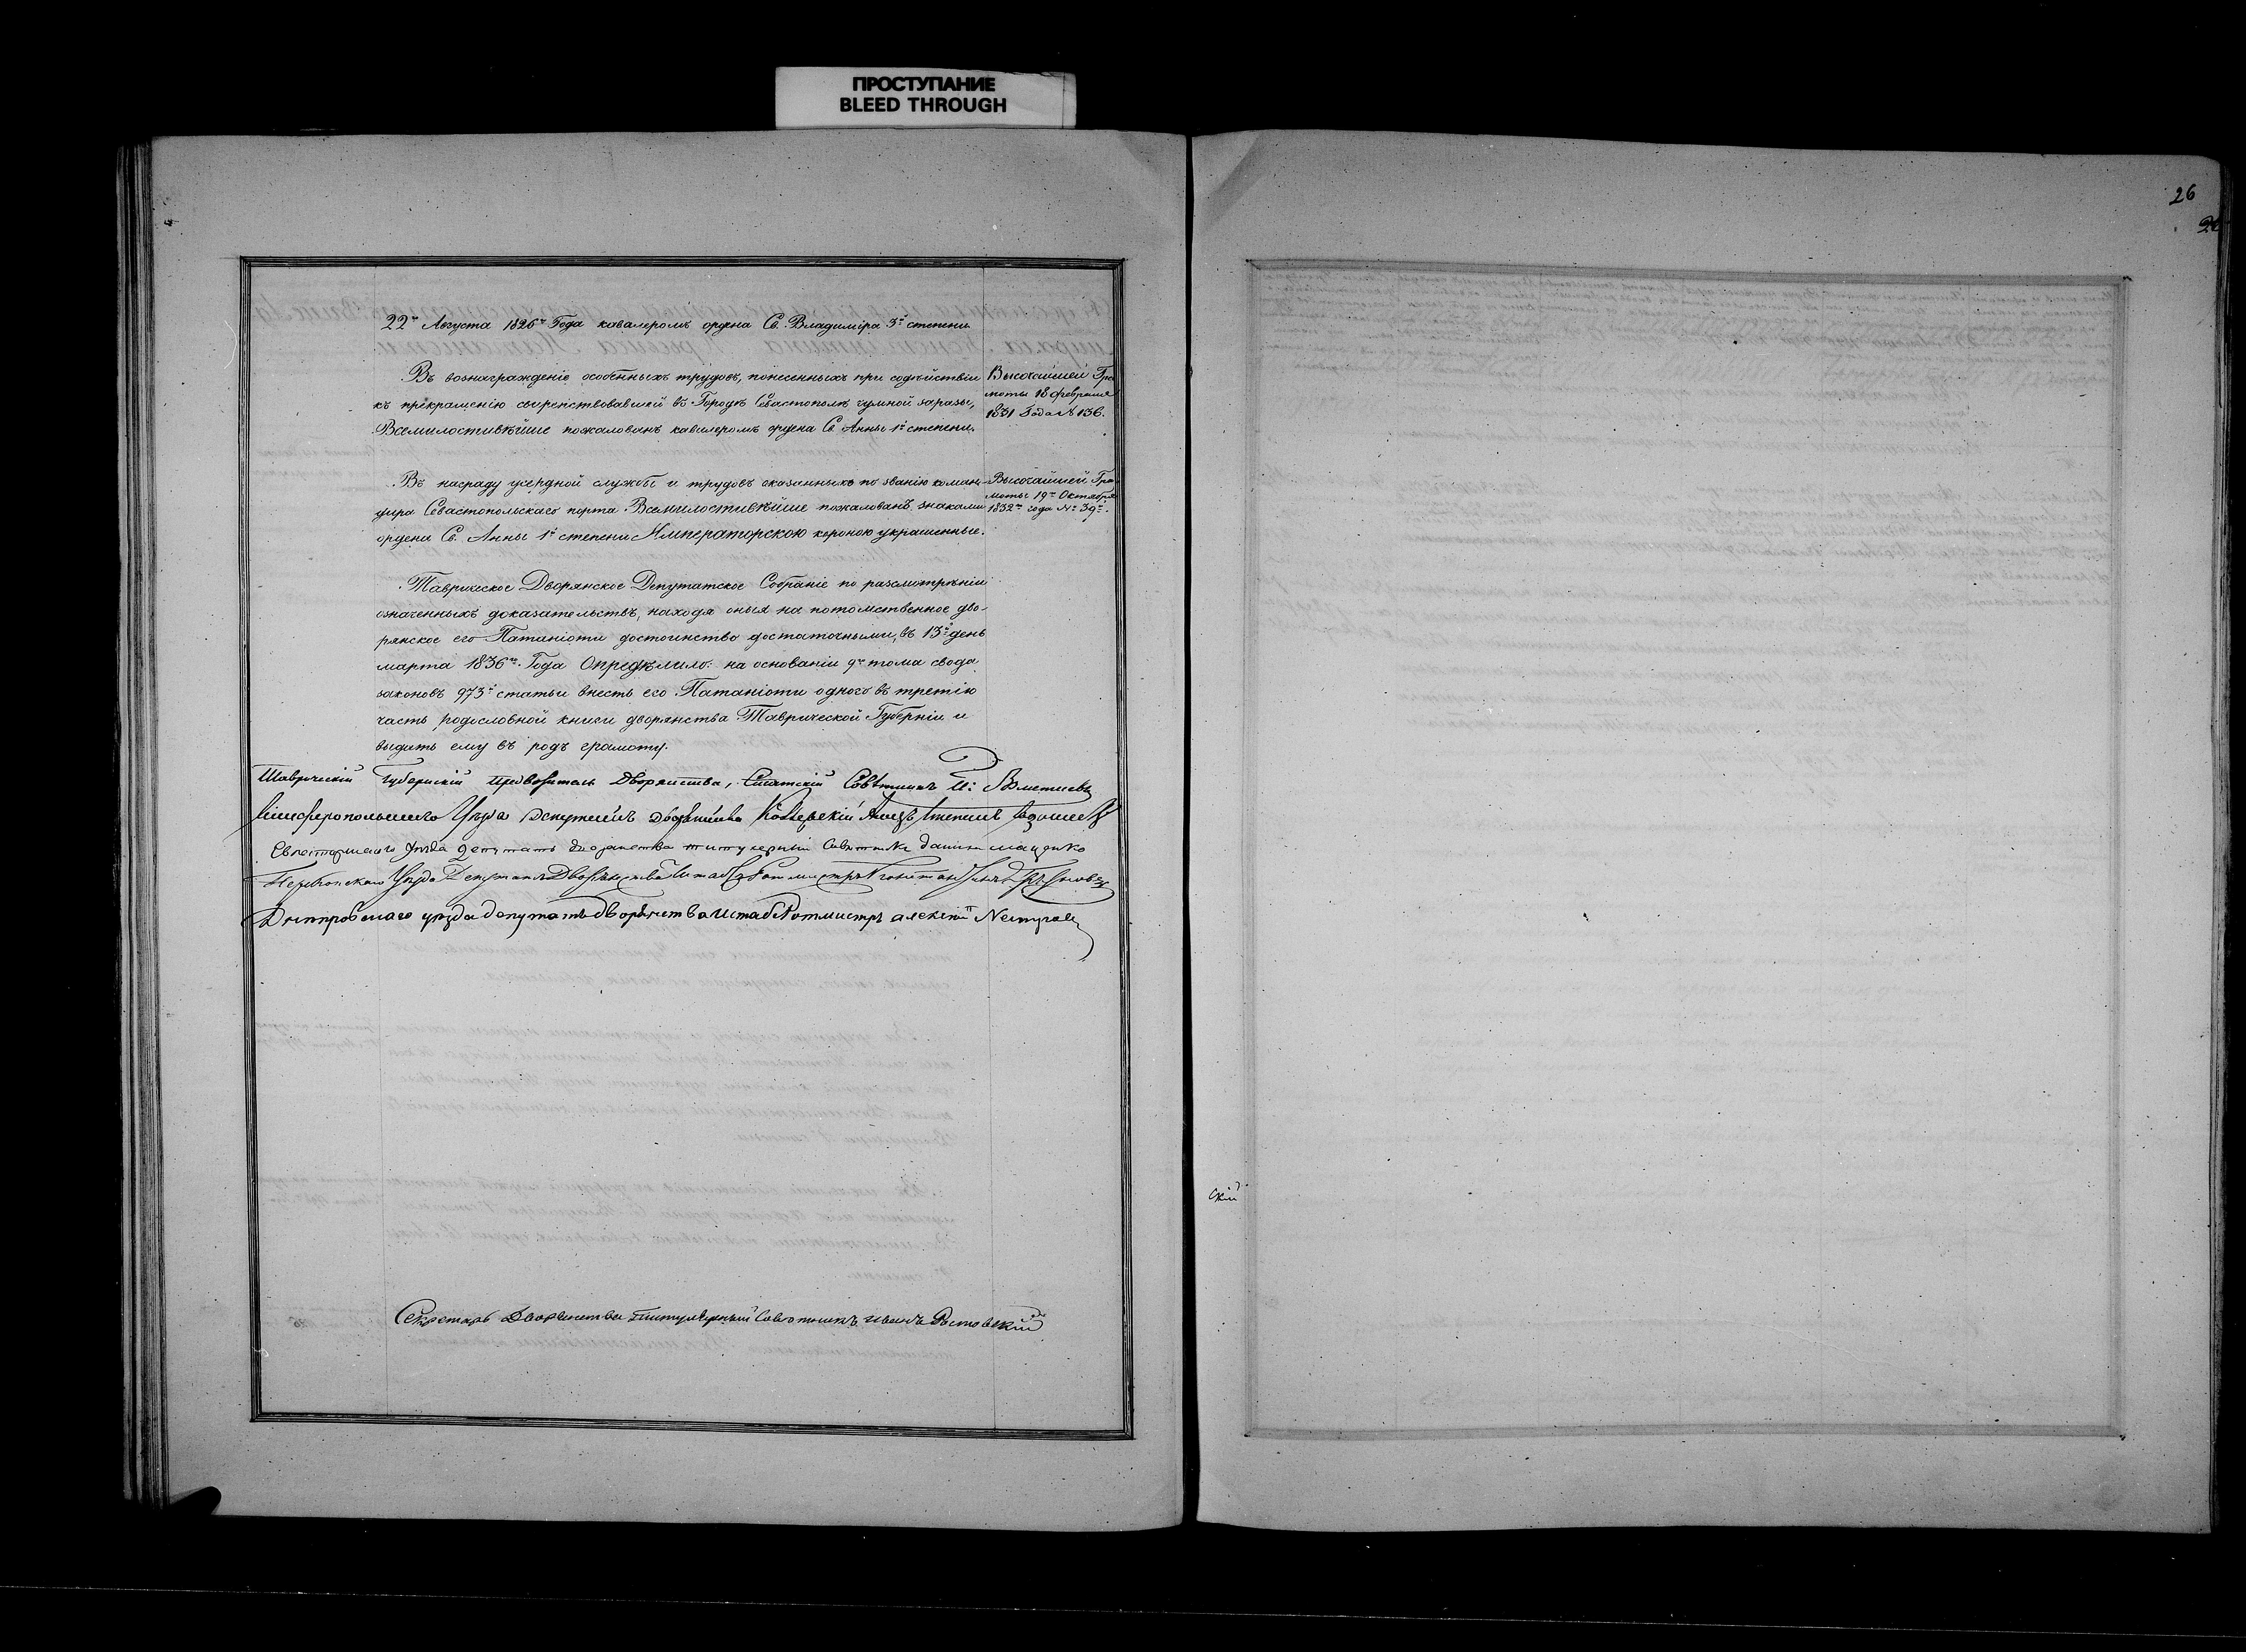 ПРОСТУПАНИЕ
BLEED THROUGH
26
22го Августа 1826го Года кавалеромъ ордена Св. Владиміра 3й степени.
Въ вознагражденіе особенныхъ трудовъ, понесенныхъ при содѣйствіи
къ прекращенію свирѣпствовавшей въ Городѣ Севастополѣ чумной заразы,
Всемилостивѣйше пожалованъ кавалеромъ ордена Св. Анны 1й степени.
Высочайшей Гра
моты 18 февраля
1831 Года № 136.
Въ награду усердной службы и трудовъ оказанныхъ по званію коман-
дира Севастопольскаго порта Всемилостивѣйше пожалованъ знаками
ордена Св. Анны 1й степени Императорскою короною украшенные.
Высочайшей Гра
моты 19го Октября
1832го года № 39й.
Таврическое Дворянское Депутатское Собраніе по разсмотрѣніи
означенныхъ доказательствъ, находя оныя на потомственное дво-
рянское его Патаніоти достоинство достаточными, въ 13й день
марта 1836го Года Опредѣлило: на основаніи 9го тома свода
законовъ 973й статьи внесть его Патаніоти одного въ третію
часть родословной книги дворянства Таврической Губерніи и
выдать ему въ родъ грамоту.
Таврическій Губернскій Предводитель Дворянства, Статскій Совѣтникъ
Симферопольскаго Уѣзда Депутатъ Дворянства
Евпаторійскаго Уѣзда Депутатъ дворянства титулярный Совѣтникъ
Перекопскаго Уѣзда Депутатъ Дворянства Штабъ Ротмистръ
Днепровскаго уѣзда депутатъ дворянства Штабъ Ротмистръ Алексѣй
Секретарь Дворянства Титулярный Совѣтникъ Иванъ Ростовскій
скій